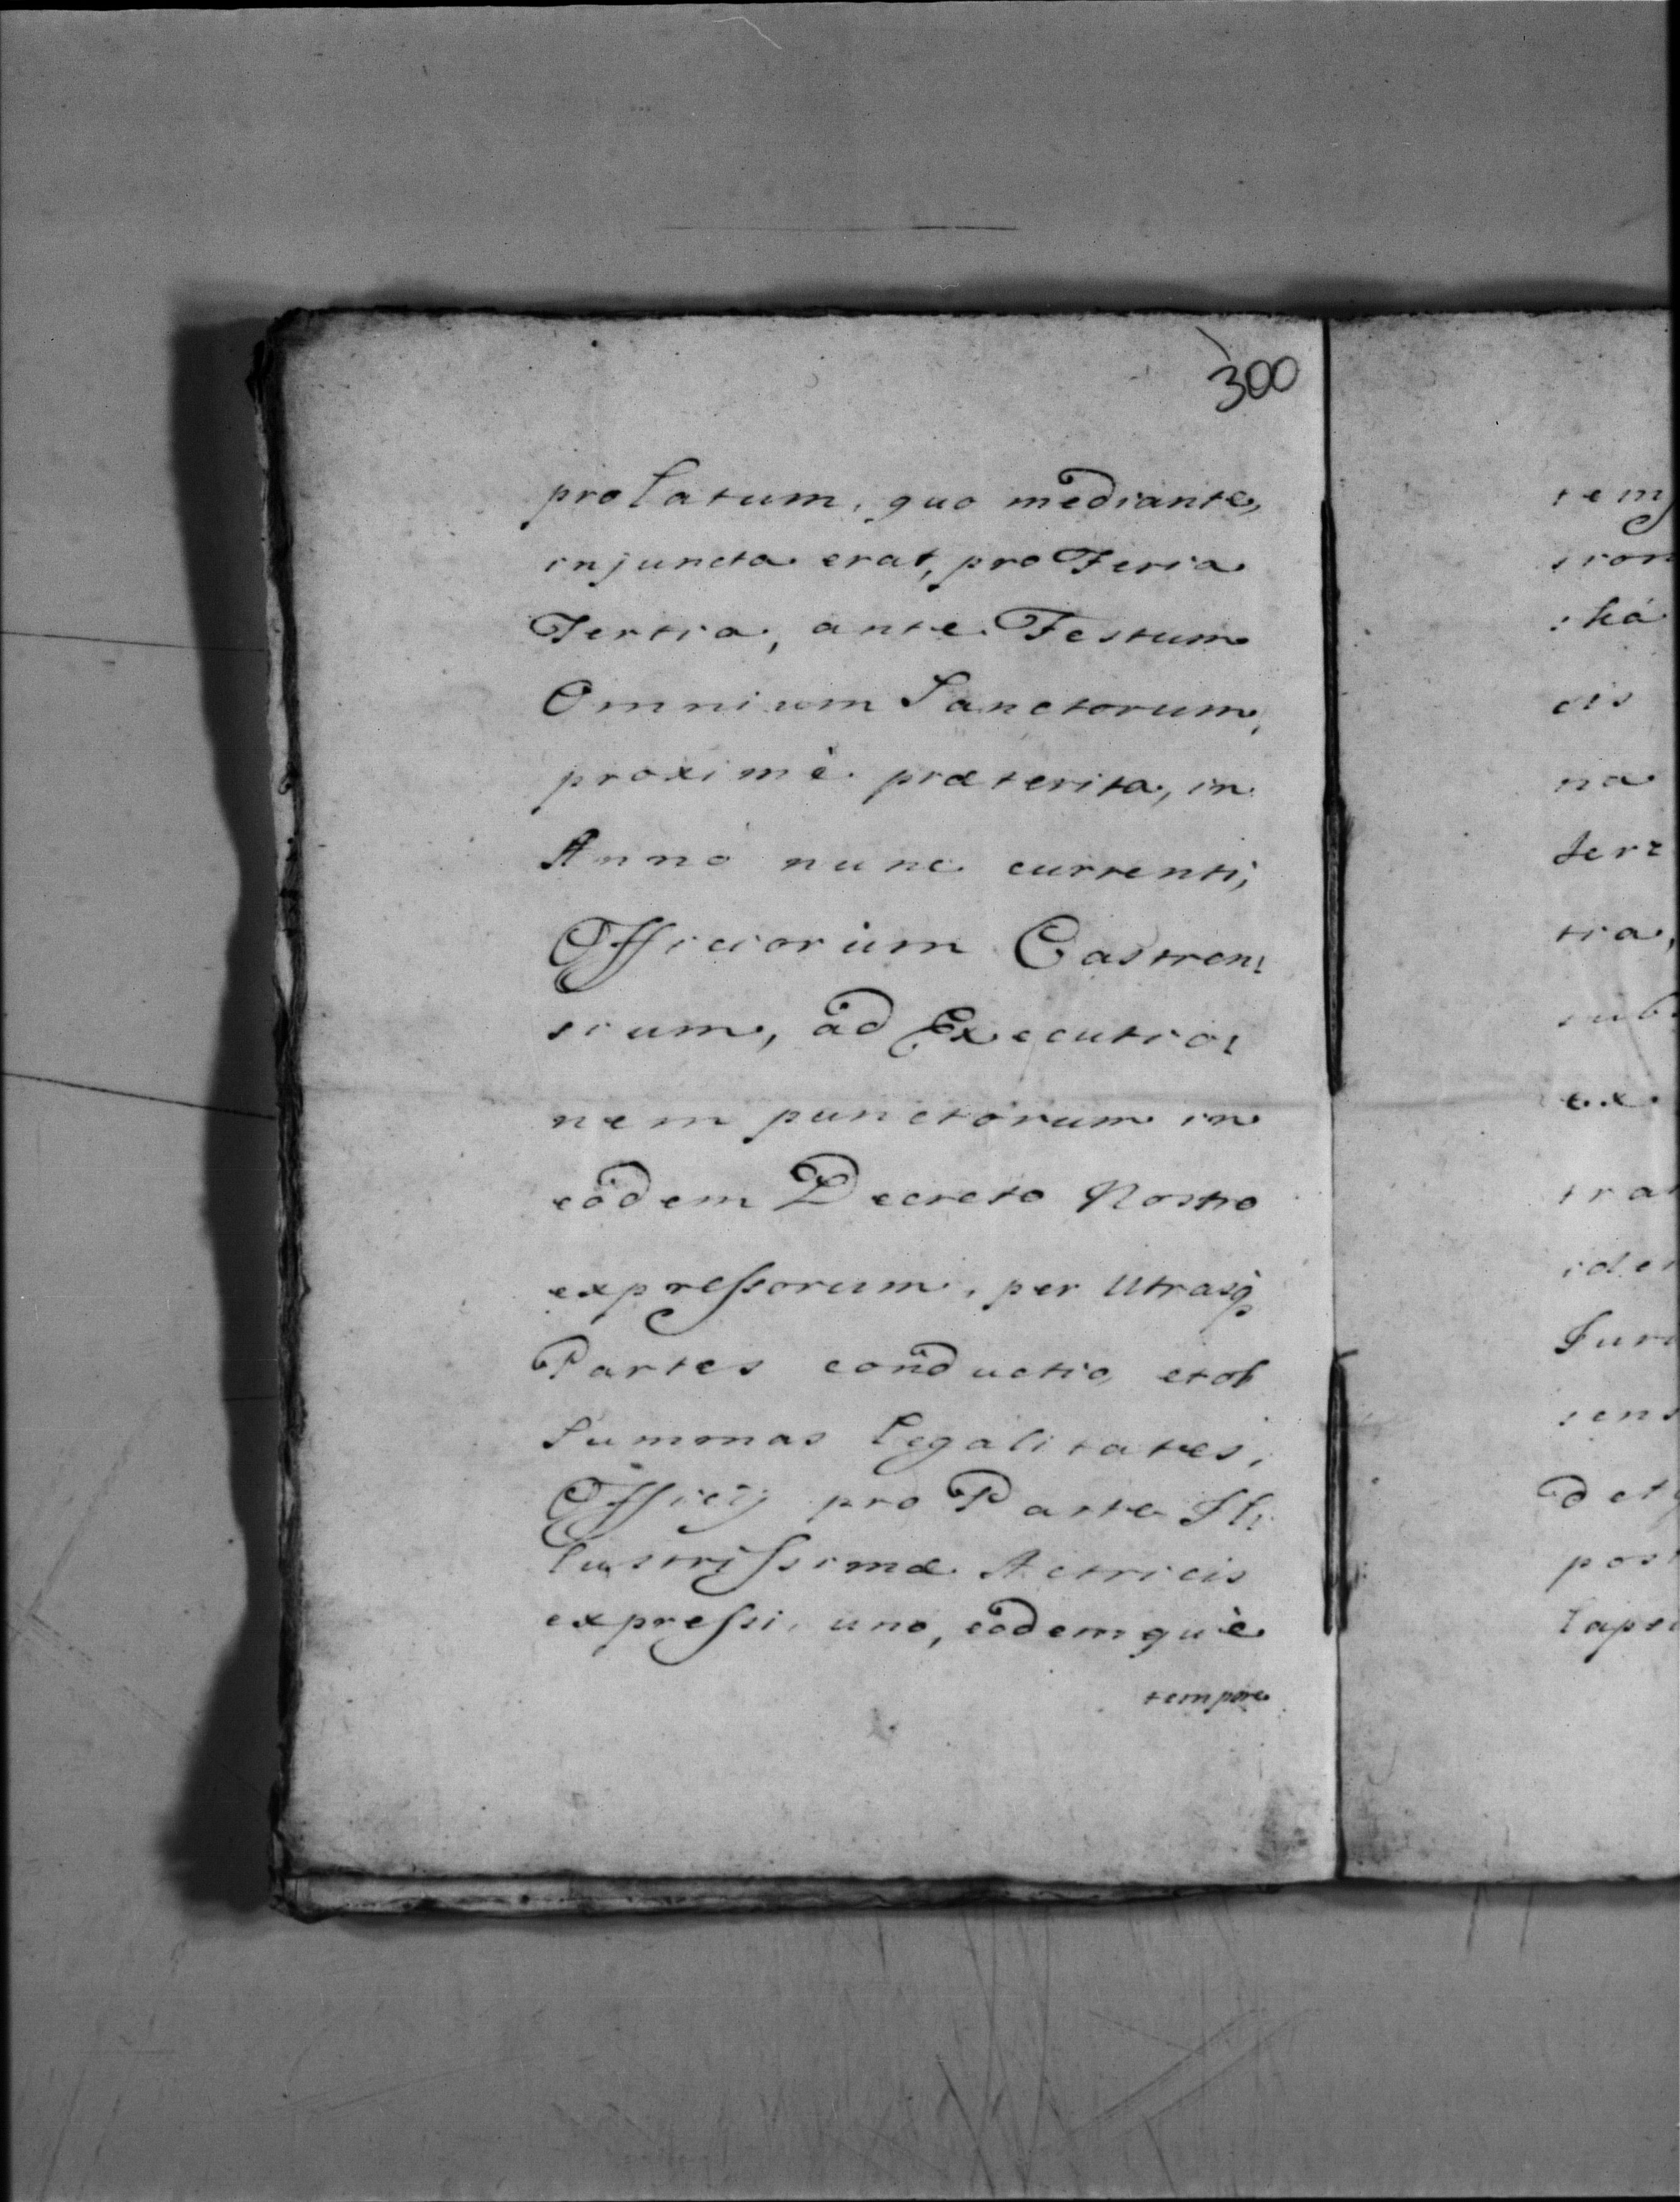 300
prolatum, quo mediante,
injuncta erat, pro Feria
Tertia, ante Festum
Omnium Sanctorum,
proximè præterita, in
Anno nunc currenti,
Officiorum Castren:
sium, ad Executio:
nem punctorum in
eodem Decreto Nostro
expressorum, per Utrasq
Partes conductio, et ob
Summas legalitates,
Officij pro Parte Il:
lustrissimæ Actricis
expressi, uno, eodemquè
tempore
tem
sion
:ká
cis
na
ter:
tia,
sub
ex
tra
ide
Juri
sens
det
pos
laps